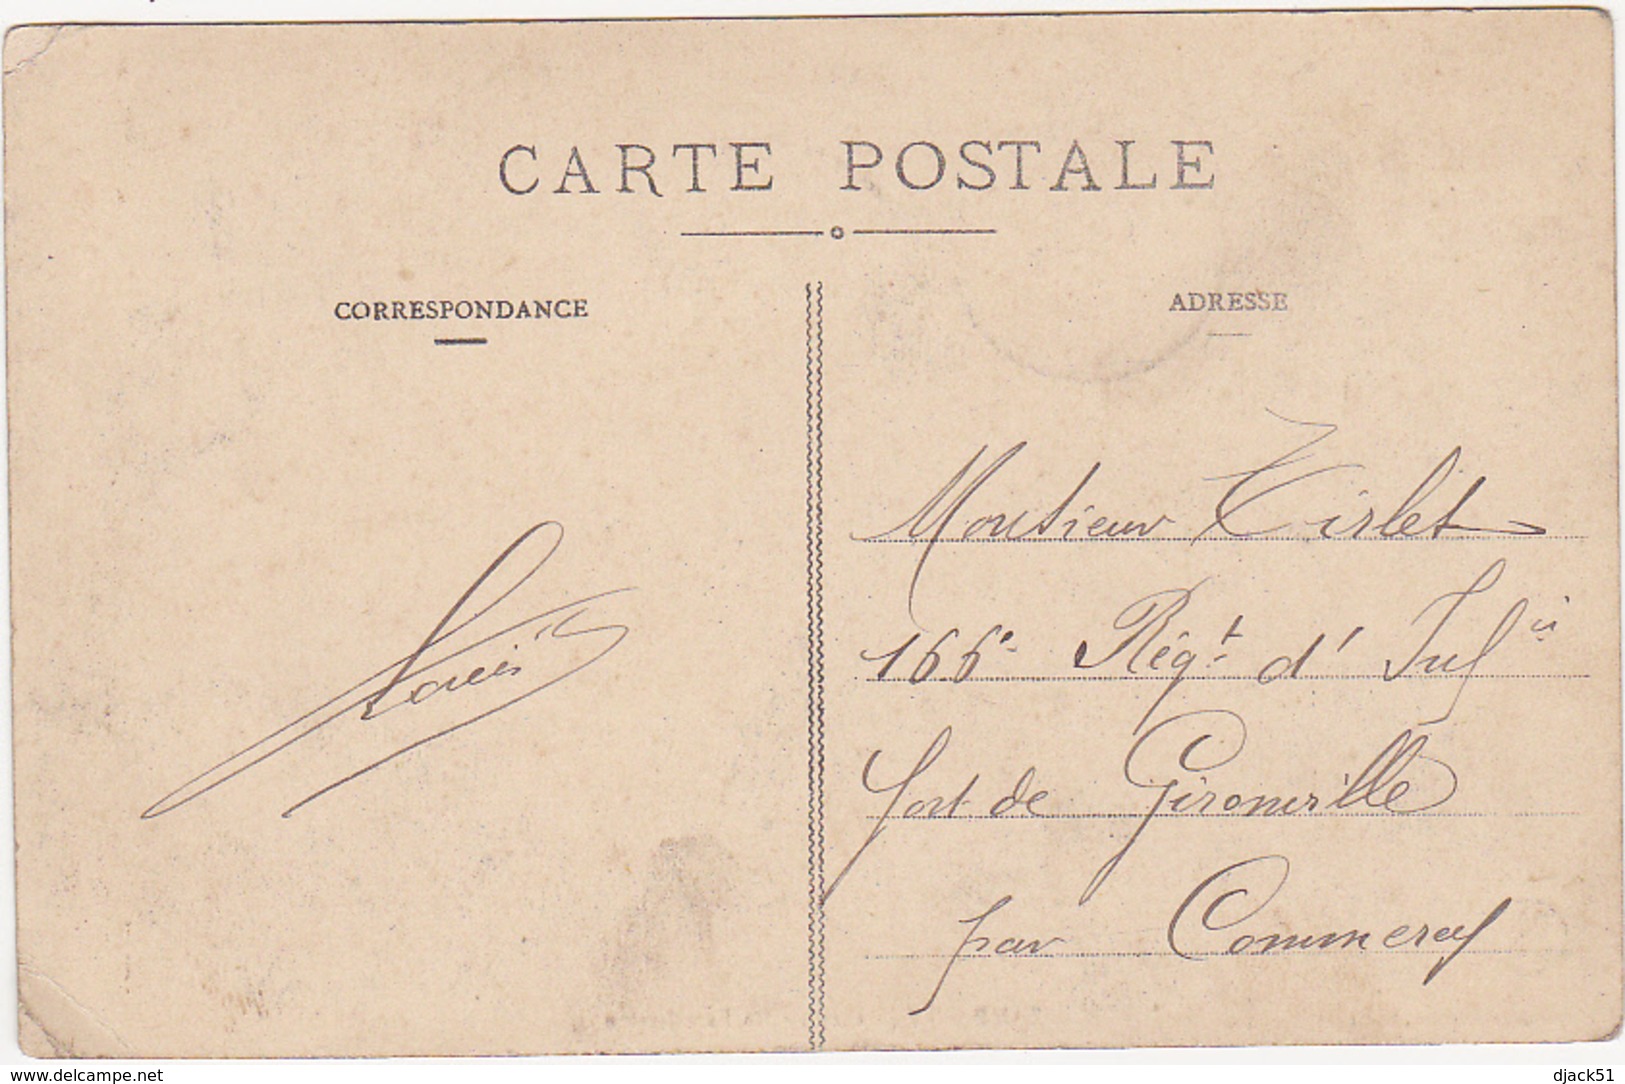 CARTE POSTALE
CORRESPONDANCE
ADRESSE
Louis
Monsieur Tirlet
166e Régt d'Infie
fort de Gironville
par Commercy
www.delcampe.net
djack51